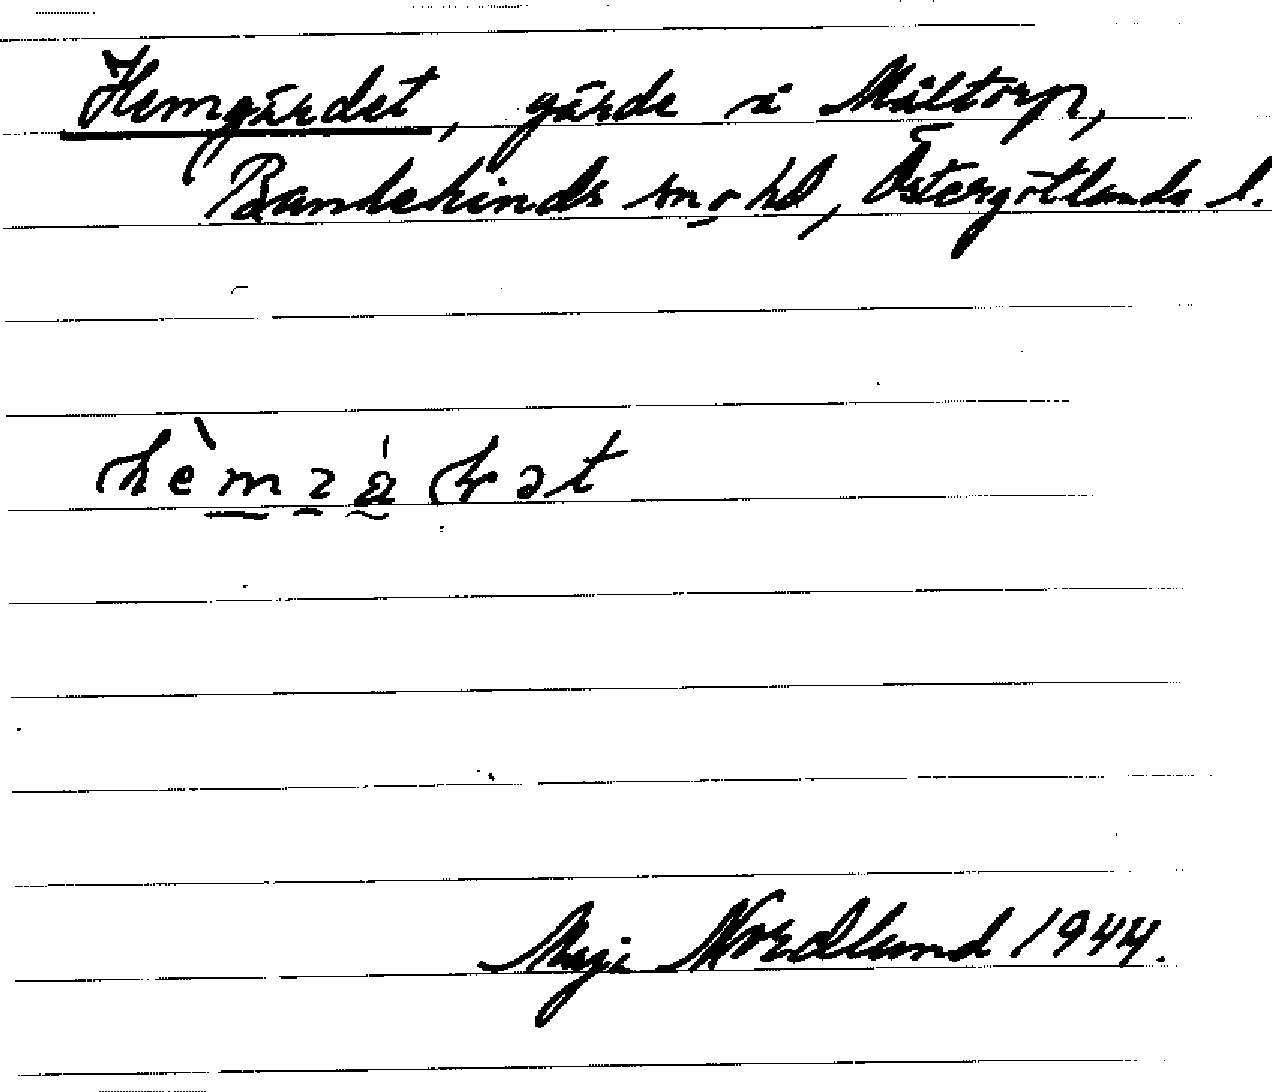 Hemgärdet, gärde å Måltorp,
Bankekinds sn o hd, Östergötlands l.
Maji Nordlund 1944.